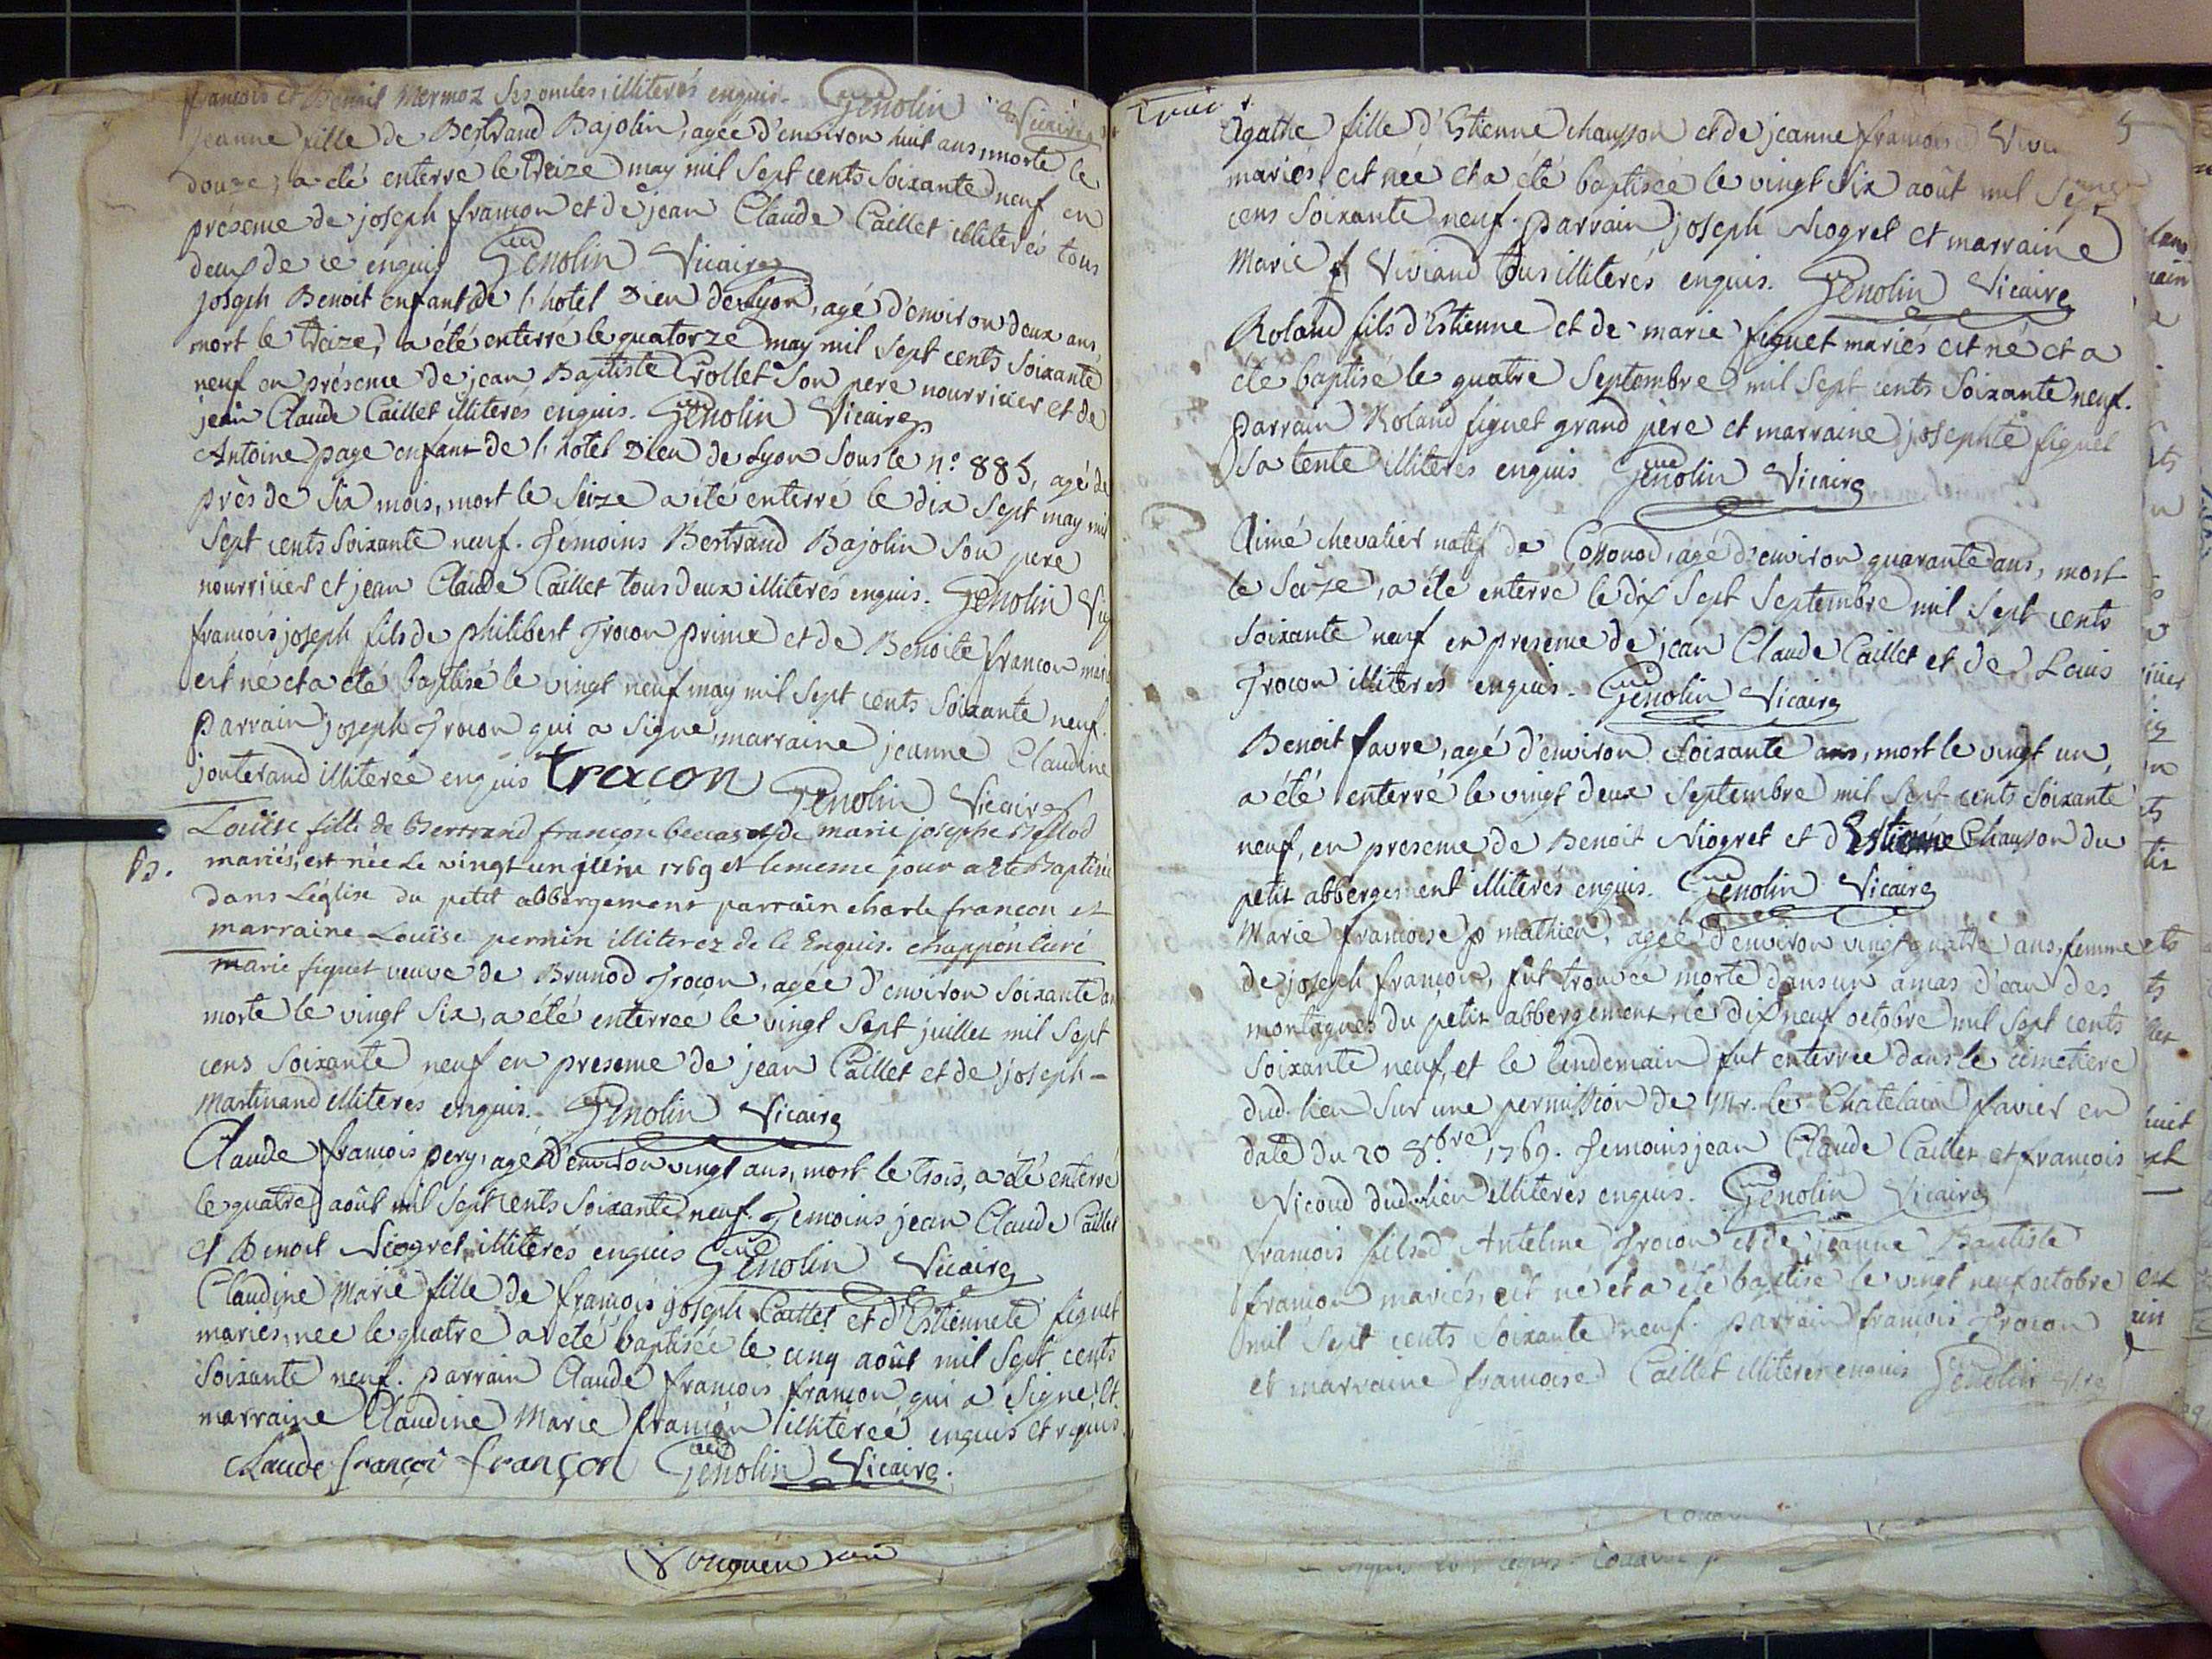 françois et Benoit Mermoz ses oncles, illiterés enquis. Genolin Vicaire
Jeanne fille de Bertrand Bajolin, agée d'environ huit ans, morte le
douze, a été enterré le treize may mil sept cents soixante neuf en
présence de joseph françon et de jean Claude Caillet illiterés tous
deux de ce enquis Genolin Vicaire
joseph Benoit enfant de l'hotel Dieu de Lyon, agé d'environ deux ans,
mort le treize, a été enterré le quatorze may mil sept cents soixante
neuf en présence de jean Baptiste Grollet son pere nourricier et de
jean Claude Caillet illiterés enquis. Genolin Vicaire
Antoine page enfant de l'hotel Dieu de Lyon sous le n.° 885, agé de
près de six mois, mort le seize a été enterré le dix sept may mil
sept cents soixante neuf. Temoins Bertrand Bajolin son pere
nourricier et jean Claude Caillet tous deux illiterés enquis. Genolin
françois joseph fils de philibert Trocon prime et de Benoite françon
est né et a été baptisé le vingt neuf may mil sept cents soixante neuf.
Parrain joseph Trocon qui a signé, marraine jeanne Claudine
jouterand illiterée enquis tracon Genolin Vicaire
Louïse fille de Bertrand françon beccas et de marie josephe
B. mariés, est née Le vingt un 1769 et le meme jour a ete Baptisée
dans L'église du petit abbergement parrain charle françon et
marraine Louïse pernin illiterez de le Enquis. chappon curé
marie fiquet veuve de Brunod Trocon, agée d'environ soixante
morte le vingt six, a été enterrée le vingt sept juillet mil sept
cens soixante neuf en presence de jean Caillet et de joseph-
Martinand illiterés enquis. Genolin Vicaire
Claude françois pery, agé d'environ vingt ans, mort le trois, a été enterré
le quatre août mil sept cents soixante neuf. Temoins jean Claude Caillet
et Benoit Niogret illiterés enquis Genolin Vicaire
Claudine Marie fille de françois joseph Caillet et d'Estiennete fiquet
mariés, née le quatre a été baptisée le cinq août mil sept cents
soixante neuf. parrain Claude françois françon, qui a signé, et
marraine Claudine Marie françon illiterée enquis et requis
Claude françoi françon Genolin Vicaire.
Agathe fille d'Estienne chausson et de jeanne françoise
mariés, est née et a été baptisée le vingt six août mil sept
cens soixante neuf. Parrain joseph Niogret et marraine
Marie f Viviand tous illiterés enquis. Genolin Vicaire
Roland fils d'Estienne et de marie fiquet mariés est né et a
été baptisé le quatre septembre mil sept cents soixante neuf.
Parrain Roland fiquet grand père et marraine josephte fiquet
sa tente illiterés enquis Genolin Vicaire
Aimé chevalier natif de Cormod, agé d'environ quarante ans, mort
le seize, a été enterré le dix sept septembre mil sept cents
soixante neuf en presence de jean Claude Caillet et de Louis
Trocon illiterés enquis. Genolin Vicaire
Benoit favre, agé d'environ soixante ans, mort le vingt un,
a été enterré le vingt deux septembre mil sept cents soixante
neuf, en presence de Benoit Niogret et d'Estienne Chausson du
petit abbergement illiterés enquis. Genolin Vicaire
Marie françoise p mathieu, agée d'environ vingt quatre ans, femme
de joseph françon, fut trouvée morte dans un amas d'eau des
montagnes du petit abbergement, le dix neuf octobre mil sept cents
soixante neuf, et le lendemain fut enterrée dans le cimetiere
dud. lieu sur une permission de Mr. le Chatelain favier en
date du 20 8.bre 1769. Temoins jean Claude Caillet et françois
Nicoud dud. lieu illiterés enquis. Genolin Vicaire
françois fils d'Antelme Trocon et de jeanne Baptiste
françon mariés, est né et a été baptisé le vingt neuf octobre
mil sept cents soixante neuf. parrain françois Trocon
et marraine françoise Caillet illiterés enquis Genolin